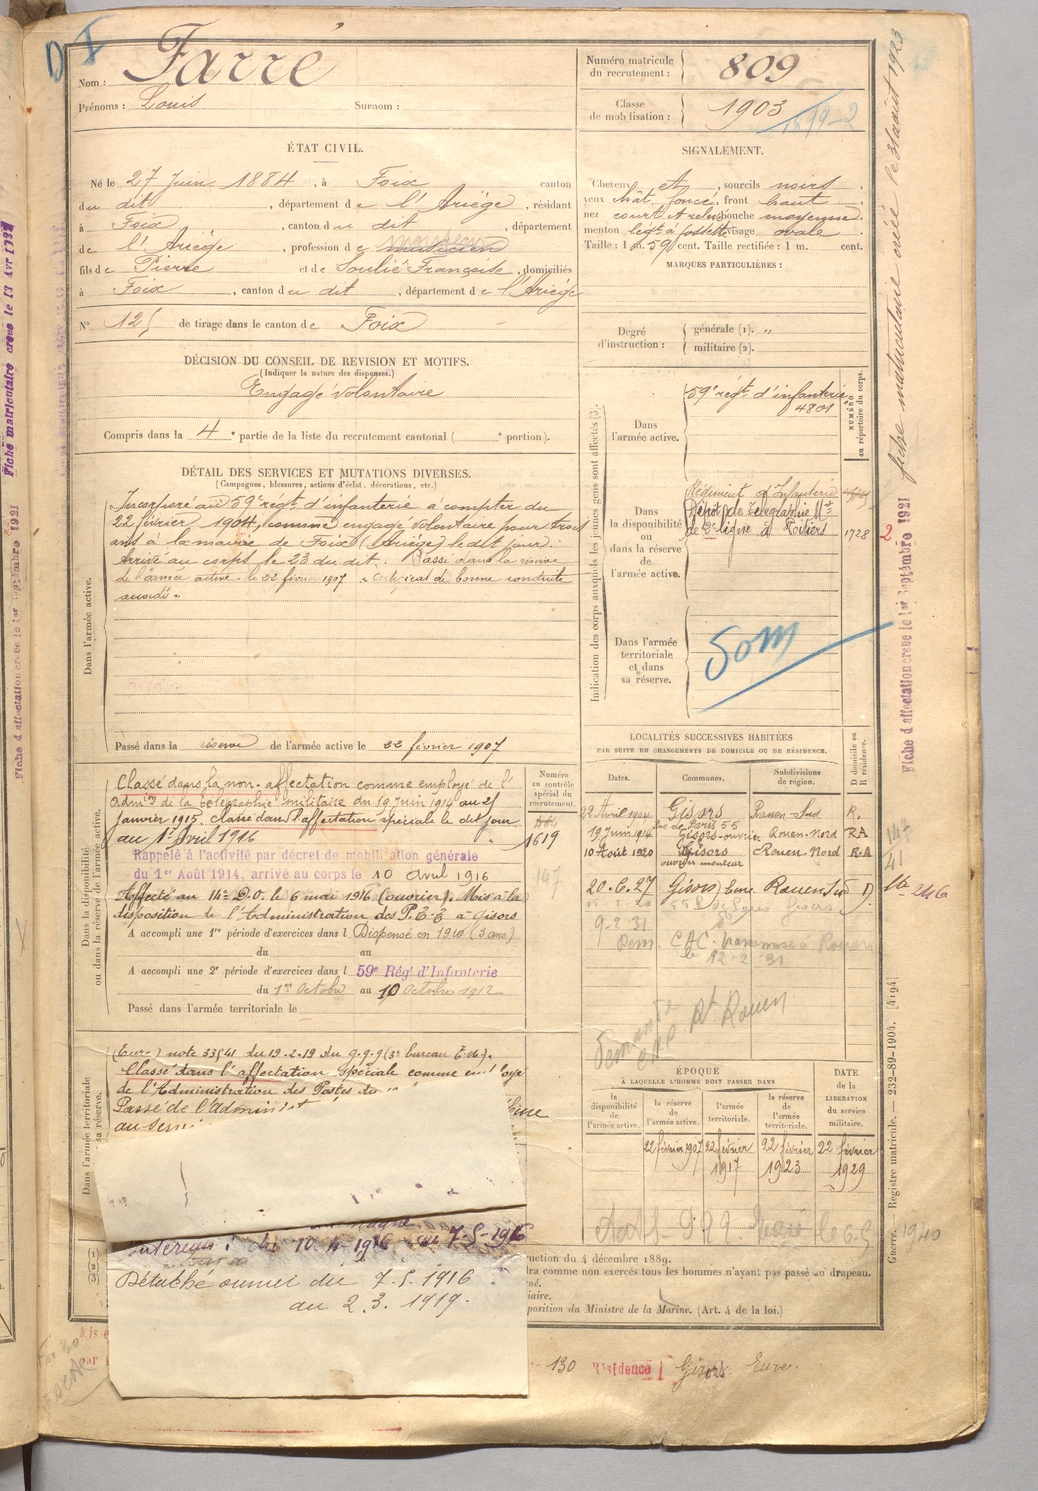 Nom : Farré
Prénoms : Louis Surnom :
Numéro matricule du recrutement : 809
Classe de mobilisation : 1903
1899-2
ÉTAT CIVIL.
Né le 27 Juin 1884, à Foix canton
du dit, département de l'Ariège, résidant
à Foix, canton du dit, département
de l'Ariège, profession de musicien
fils de Pierre et de Soulié Françoise, domiciliés
à Foix, canton du dit, département de l'Ariège
N° 125 de tirage dans le canton de Foix
SIGNALEMENT.
Cheveux et, sourcils noirs
yeux chât. foncé, front haut
nez court et relevé bouche moyenne
menton visage ovale
Taille : 1 m. 59 cent. Taille rectifiée : 1 m. cent.
MARQUES PARTICULIÈRES :
Degré d'instruction : générale (1). "
militaire (2).
DÉCISION DU CONSEIL DE REVISION ET MOTIFS.
(Indiquer la nature des dispenses.)
Engagé volontaire
Compris dans la 4e partie de la liste du recrutement cantonal ( e portion).
DÉTAIL DES SERVICES ET MUTATIONS DIVERSES.
(Campagnes, blessures, actions d'éclat, décorations, etc.)
Dans l'armée active.
Incorporé au 59e régt d'infanterie à compter du
22 février 1904, comme engagé volontaire pour trois
ans à la mairie de Foix (Ariège) le dit jour.
Arrivé au corps le 23 du dit. Passé dans la réserve
de l'armée active le 22 février 1907 Certificat de bonne conduite
accordé.
Passé dans la réserve de l'armée active le 22 février 1907
Indication des corps auxquels les jeunes gens sont affectés (3).
Dans l'armée active.
59e régt d'infanterie
4801
NUMÉRO au répertoire du corps.
Dans la disponibilité ou dans la réserve de l'armée active.
Régiment d'Infanterie
Dépôt de Télégraphie Mre
de 2e ligne à Poitiers 1728
Dans l'armée territoriale et dans sa réserve.
Som
LOCALITÉS SUCCESSIVES HABITÉES
PAR SUITE DE CHANGEMENTS DE DOMICILE OU DE RÉSIDENCE.
Dates. Communes. Subdivisions de région. D domicile ou R résidence.
22 Avril 1904 Gisors Rouen Sud R.
rue de Paris 55
19 Juin 1914 Gisors-ouvrier Rouen-Nord RA
10 Août 1920 Gisors Rouen-Nord R.A
ouvrier monteur
20-6-27 Gisors Eure Rouen Sud D
9-2-31
Dem. CAC transmise à Rouen
le 12-2-31
Demande CAC Rt Rouen
Dans la disponibilité ou dans la réserve de l'armée active.
Numéro au contrôle spécial du recrutement.
1619
Classé dans la non-affectation comme employé de l'
admon de la télégraphie militaire du 19 juin 1914 au 25
janvier 1915. Classé dans l'affectation spéciale le dit jour
au 1er Avril 1916
Rappelé à l'activité par décret de mobilisation générale
du 1er Août 1914, arrivé au corps le 10 avril 1916
Affecté au 14e D.O. le 6 mai 1916 (ouvrier). Mis à la
disposition de l'Administration des P.T.T à Gisors
A accompli une 1re période d'exercices dans l Dispensé en 1910 (3 ans)
du au
A accompli une 2e période d'exercices dans l 59e Rég. d'Infanterie
du 1er Octobre au 10 Octobre 1912
Passé dans l'armée territoriale le
Dans l'armée territoriale et dans sa réserve.
(Eure) note 33541 du 19.2.19 du G.Q.G (3e bureau E.M.).
Classé dans l'affectation spéciale comme employé
de l'Administration des Postes du
Passé de l'Administ
Intérieur : du 10-4-1916 au 7-5-1916
Détaché ouvrier du 7.5.1916
au 2.3.1919.
ÉPOQUE
À LAQUELLE L'HOMME DOIT PASSER DANS
la disponibilité de l'armée active. la réserve de l'armée active. l'armée territoriale. la réserve de l'armée territoriale.
DATE de la LIBÉRATION du service militaire.
22 février 1907 22 février 1917 22 février 1923 22 février 1929
uction du 4 décembre 1889.
dra comme non exercés tous les hommes n'ayant pas passé au drapeau.
né.
iaire.
position du Ministre de la Marine. (Art. 4 de la loi.)
130 Résidence Gisors Eure.
Guerre. — Registre matricule. — 232-89-1904. [4194]
fiche matriculaire créée le 31 août 1923
2 Fiche d'affectation créée le 1er Septembre 1921
246
Fiche matriculaire créée le 13 Avr 1937
Fiche d'affectation créée le 1er Septembre 1921